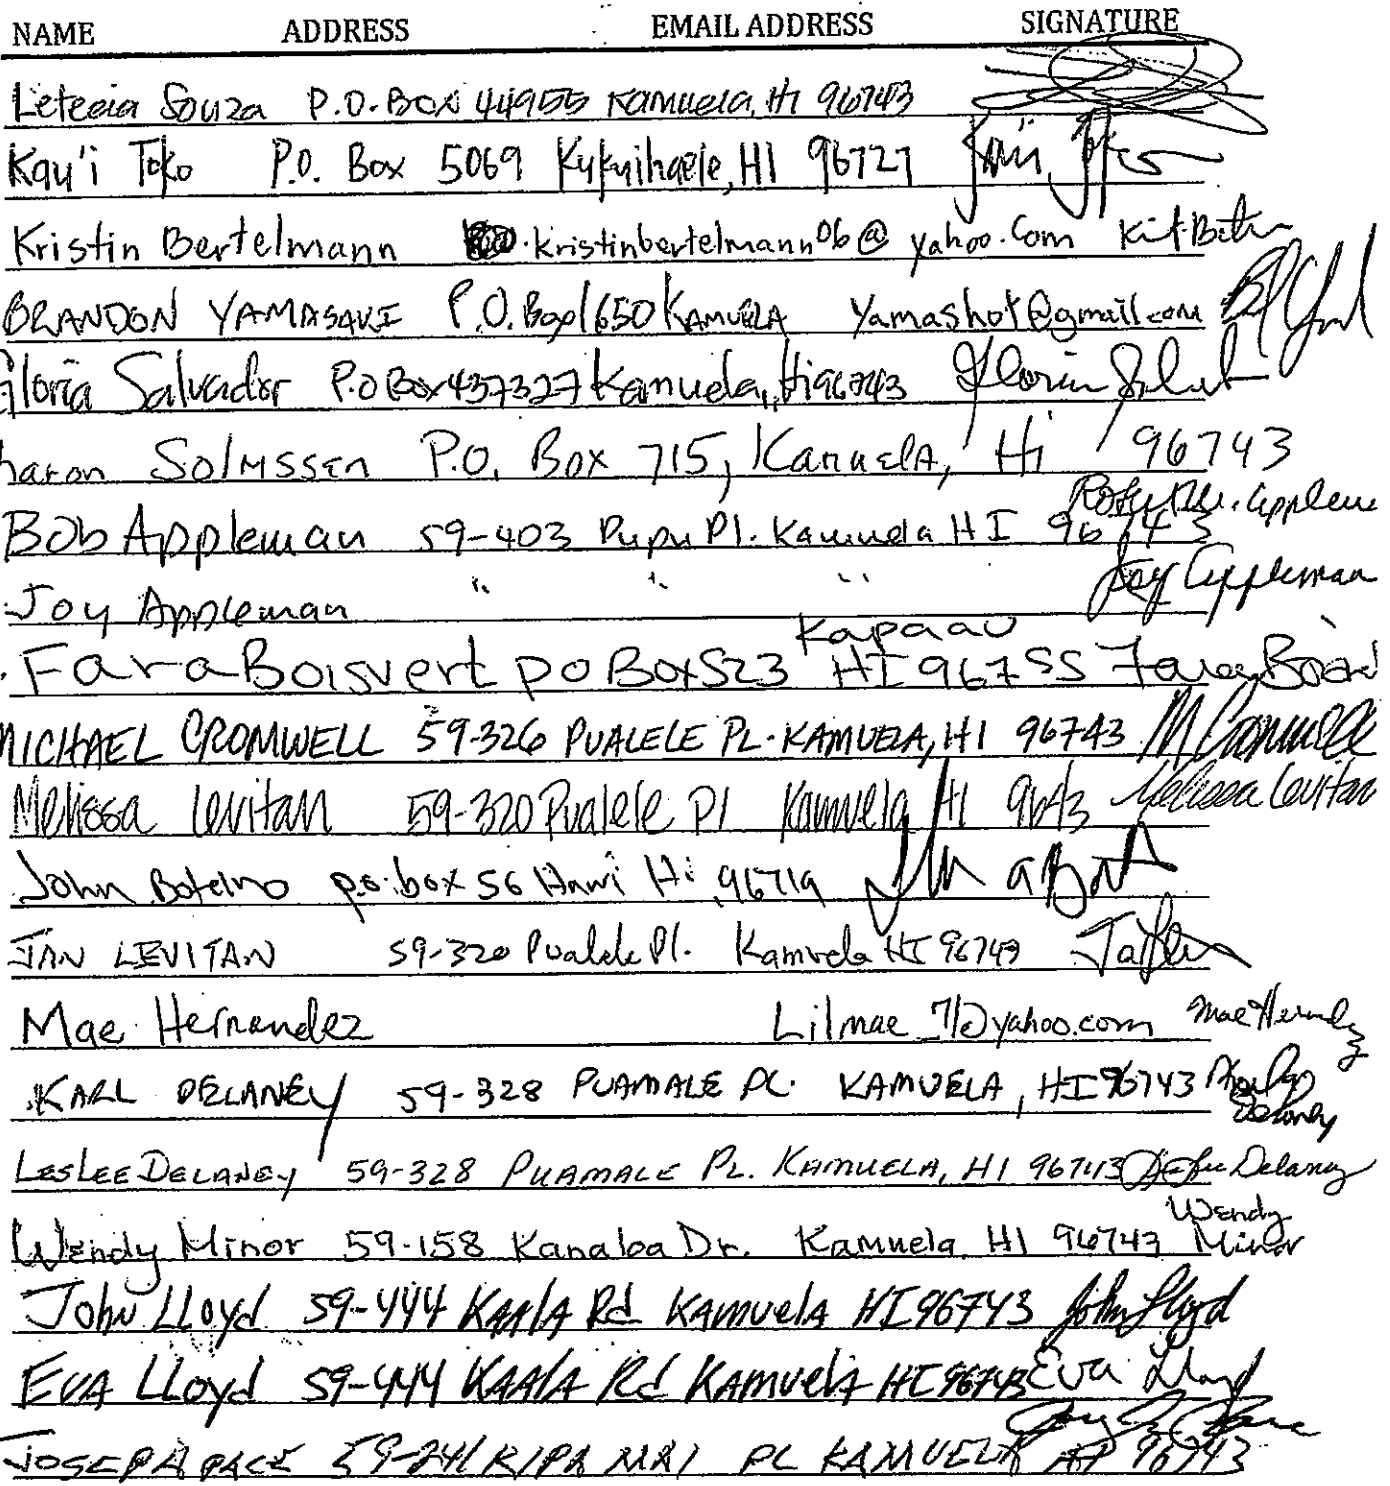 NAME ADDRESS EMAIL ADDRESS SIGNATURE
Letecia Souza P.O. Box 44955 Kamuela, HI 96743
Kau'i Toko P.O. Box 5069 Kukuihaele, HI 96727
Kristin Bertelmann kristinbertelmann06@yahoo.com
BRANDON YAMASAKI P.O. Box 1650 KAMUELA yamashot@gmail.com
Gloria Salvador P.O Box 437327 Kamuela, Hi 96743
haron Solmssen P.O. Box 715, Kamuela, Hi 96743
Bob Appleman 59-403 Pupu Pl. Kamuela HI 96743
Joy Appleman " " " Joy Appleman
Kapaau
Fara Boisvert PO Box 523 HI 96755
MICHAEL CROMWELL 59-326 PUALELE PL. KAMUELA, HI 96743 M Cromwell
Melissa Levitan 59-320 Pualele Pl Kamuela HI 9643 Melissa Levitan
John Botelho p.o. box 56 Hawi Hi 96719
JAN LEVITAN 59-320 Pualele Pl. Kamuela HI 96743
Mae Hernandez Lilmae_71@yahoo.com Mae Hernandez
KARL DELANEY 59-328 PUAMALE PL. KAMUELA, HI 96743
Delaney
LESLEE DELANEY 59-328 PUAMALE PL. KAMUELA, HI 96743 Delaney
Wendy
Wendy Minor 59-158 Kanaloa Dr. Kamuela HI 96743 Minor
John LLoyd 59-444 KAALA Rd KAMUELA HI 96743 John Lloyd
EVA LLoyd 59-444 KAALA Rd KAMUELA HI 96743 Eva Lloyd
JOSEPH PACE 59-241 KIPA MAI PL KAMUELA 96743